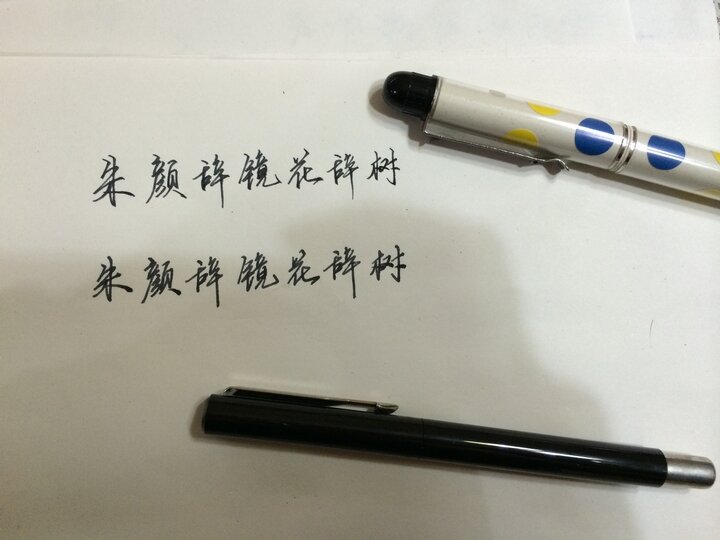 朱颜辞镜花辞树
朱颜辞镜花辞树